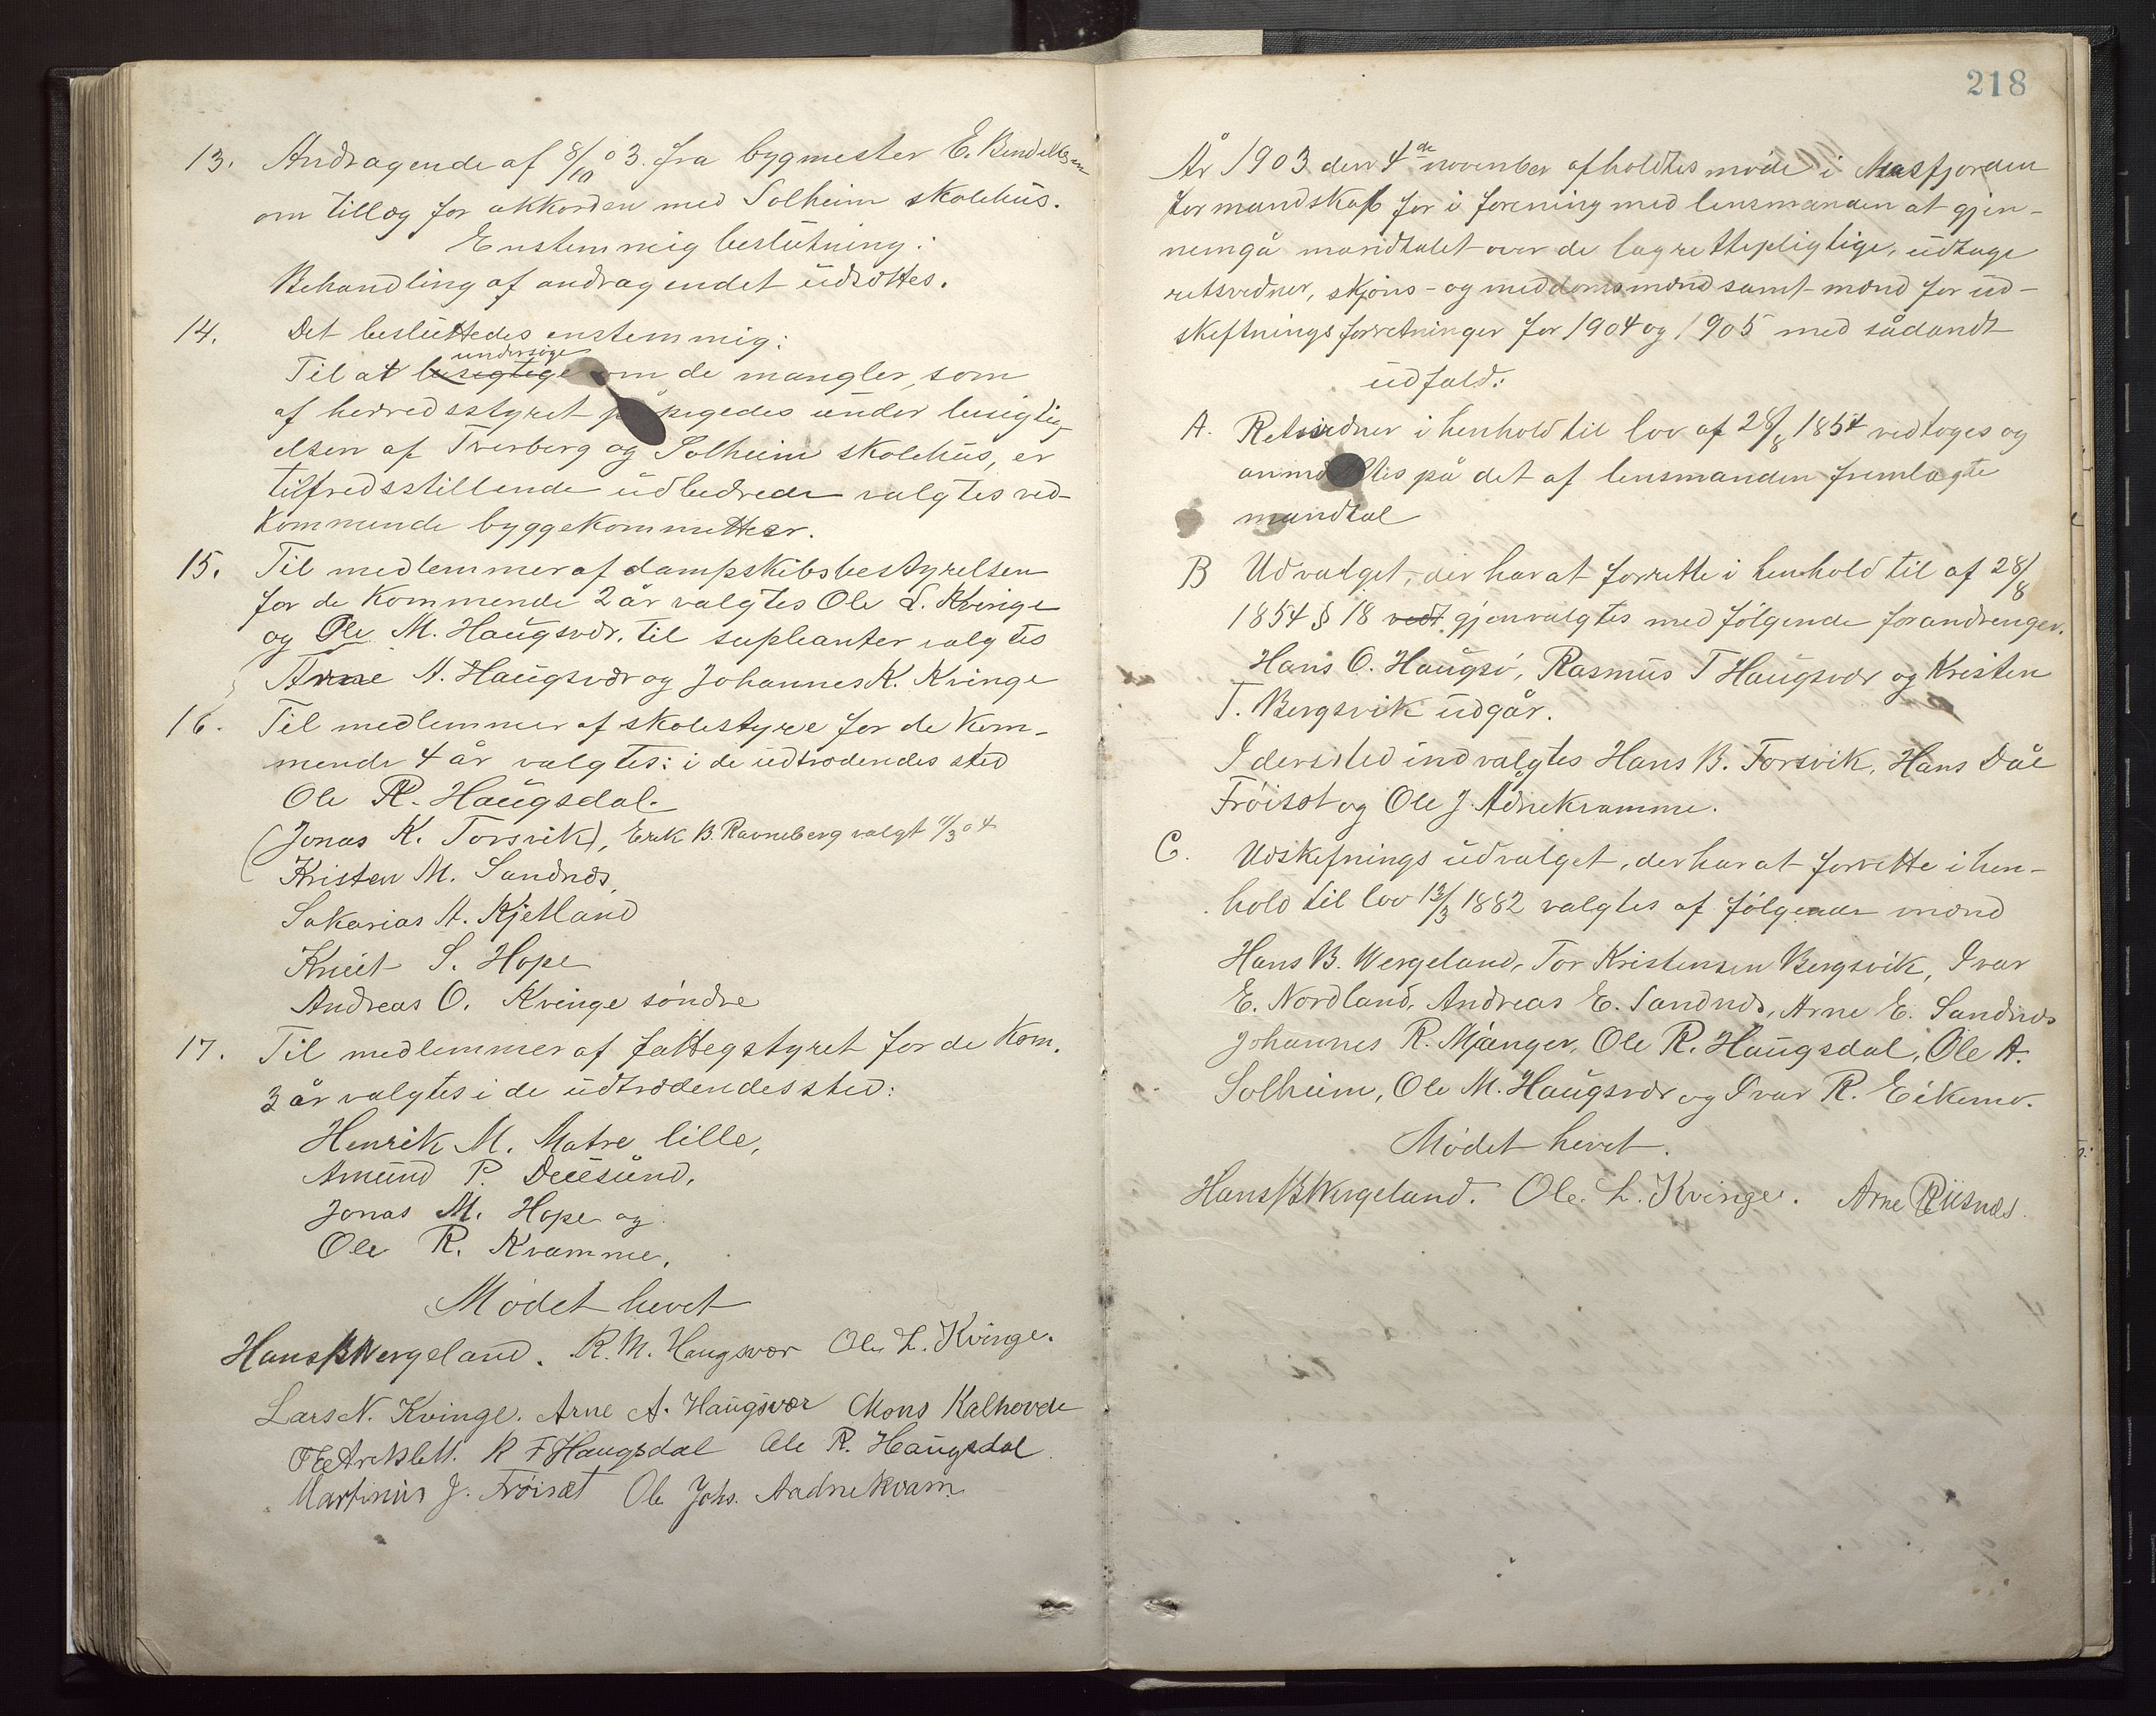 13. Andragende af 8/10 03. fra bygmester E. Bendiktsen
om tillæg for akkorden med Solheim skolehus.
Enstemmig beslutning:
Behandling af andragendet udsættes.
14. Det besluttedes enstemmig:
undersøge
Til at besegtige om de mangler, som
af herredsstyret påpegedes under besigtig-
elsen af Tverberg og Solheim skolehus, er
tilfredsstillende udbedrede valgtes ved-
kommende byggekommitteer.
15. Til medlemmer af dampskibsbestyrelsen
for de kommende 2 år valgtes Ole L. Kvinge
og Ole M. Haugsvær. til supleanter valgtes
Arne A. Haugsvær og Johannes K. Kvinge
16. Til medlemmer af skolestyre for de kom-
mende 4 år valgtes: i de udtrædendes sted
Ole R. Haugsdal.
(Jonas K. Torsvik), Erik B. Ravneberg valgt 11/3 04
Kristen M. Sandnæs,
Sakarias A. Kjetland
Knut S. Hope
Andreas O. Kvinge søndre
17. Til medlemmer af fattegstyret for de kom.
3 år valgtes i de udtrædendes sted:
Henrik M. Matre lille,
Amund P. Duesund,
Jonas M. Hope og
Ole R. Kvamme,
Mødet hevet
Hans B Wergeland. R. M. Haugsvær Ole L. Kvinge.
Lars N. Kvinge. Arne A. Haugsvær Mons Kalhovde
R F Haugsdal Ole R. Haugsdal
Martinus J. Frøiset Ole Johs. Aadnekvam
218
År 1903 den 4de november afholdtes møde i Masfjorden
formandskab for i forening med lensmanden at gjen-
nemgå mandtalet over de lagrettepligtige, udtage
retsvedner, skjøns- og meddomsmænd samt mænd for ud-
skeftningsforretninger for 1904 og 1905 med sådandt
udfald:
A. Retsvidner i henhold til lov af 28/8 1854 vedtoges og
anmældtes på det af lensmanden fremlagte
mandtal
B Udvalget, der har at forrette i henhold til af 28/8
1854 § 18 vedt gjenvalgtes med følgende forandrenger.
Hans O. Haugsø, Rasmus T Haugsvær og Kristen
T. Bergsvik udgår.
I dersted indvalgtes Hans B. Torsvik, Hans Dåe
Frøiset og Ole J. Ådnekvamme.
C. Udskefnings udvalget, der har at forrette i hen-
hold til lov 13/3 1882 valgtes af følgende mænd
Hans B. Wergeland, Tor Kristensen Bergsvik, Ivar
E. Nordland, Andreas E. Sandnæs, Arne E. Sandnæs
Johannes R. Mjanger, Ole R. Haugsdal, Ole A.
Solheim, Ole M. Haugsvær og Ivar R. Eikemo.
Mødet hevet.
Hans B Wergeland. Ole L. Kvinge. Arne Riisnæs.